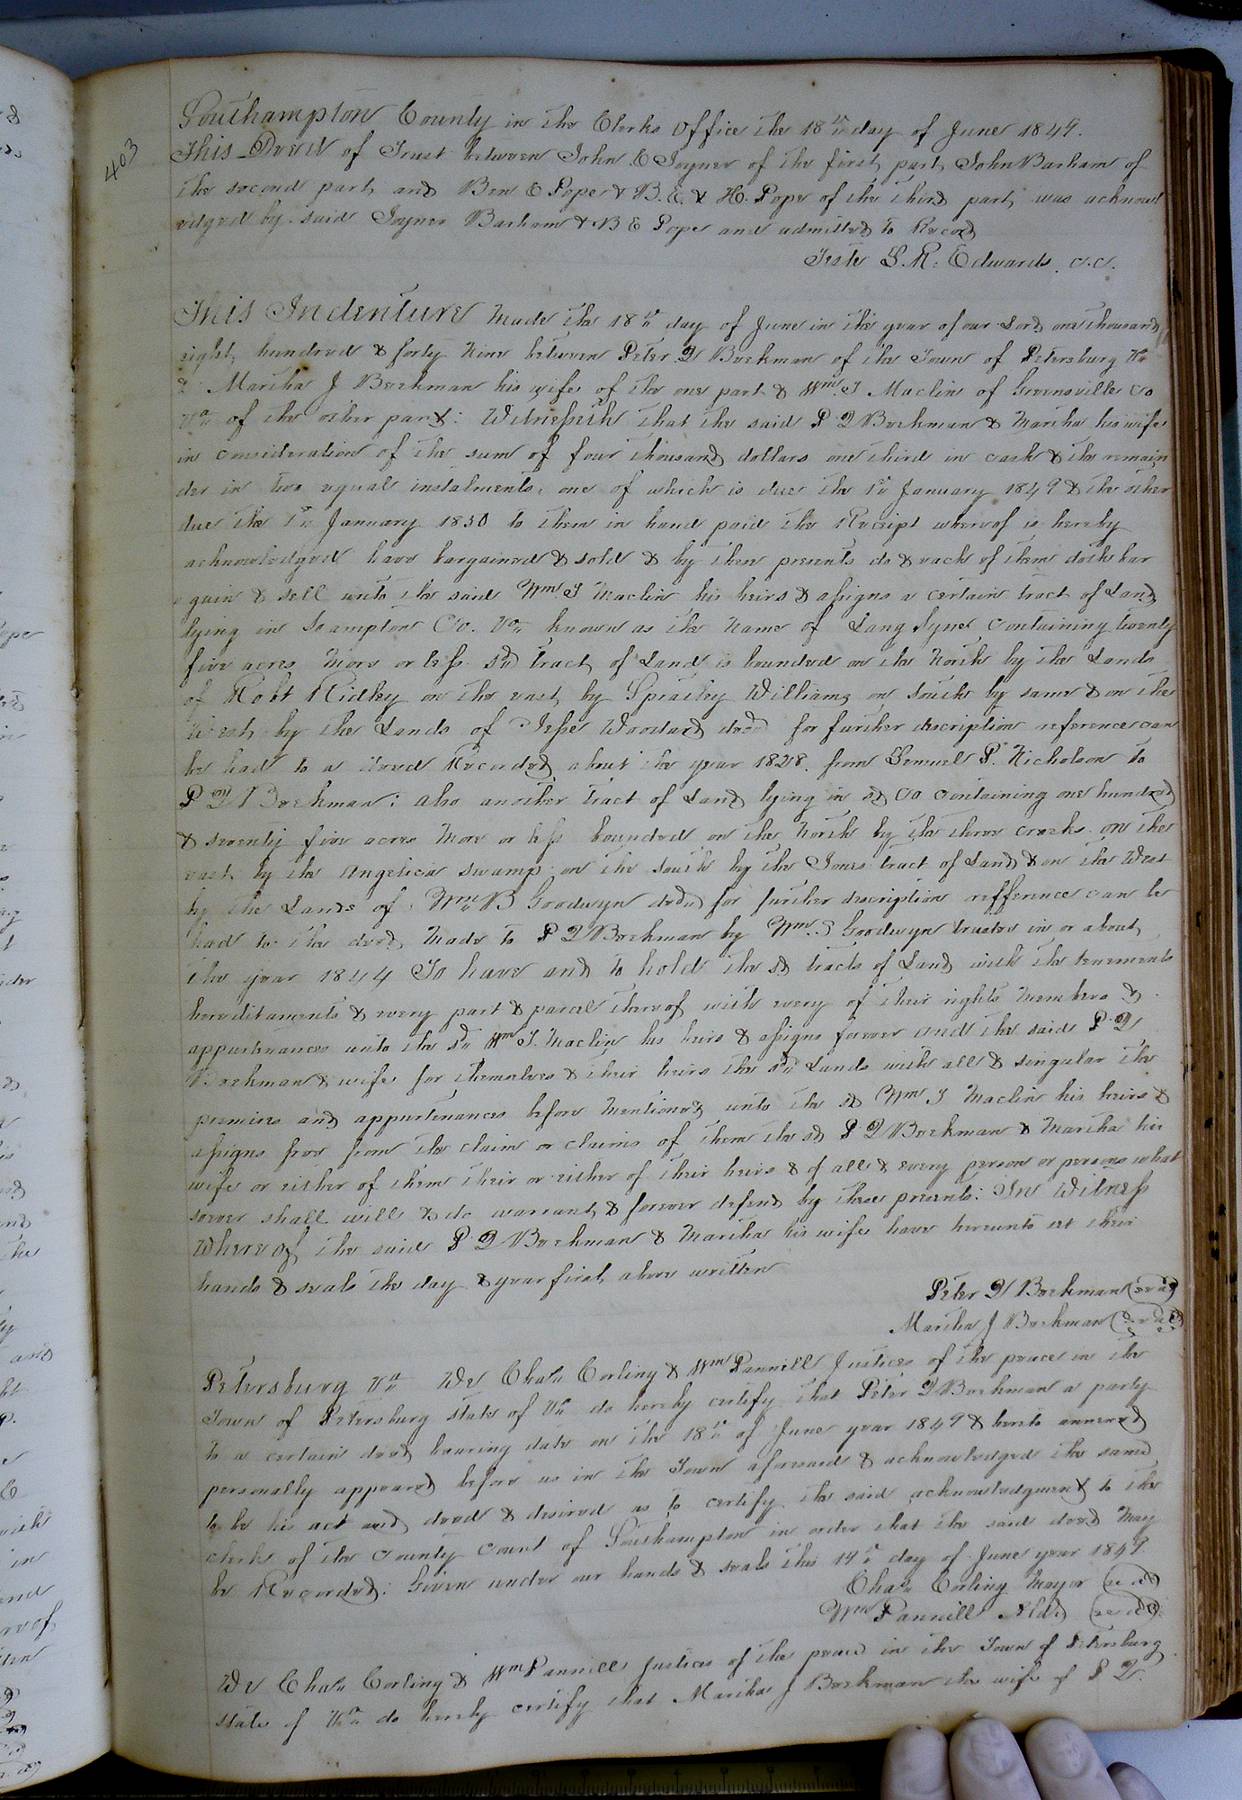 403
Southampton County in the Clerks Office the 18th day of June 1849.
This Deed of Trust between John E Joyner of the first part, John Barham of
the second part, and Ben E Pope & B. E. & H. Pope of the third part, was acknowl
edged by said Joyner Barham & B E Pope and admitted to Record
Teste L. R. Edwards. c.c.
This Indenture Made the 18th day of June in the year of our Lord one thousand
eight hundred & forty Nine between Peter D Beekman of the Town of Petersburg Va
& Martha J Beekman his wife of the one part & Wm. T Maclin of Greensville Co
Va of the other part: Witnesseth that the said P D Beekman & Martha his wife
in consideration of the sum of four thousand dollars one third in cash & the remain
der in two equal instalments, one of which is due the 1st January 1849 & the other
due the 1st January 1850 to them in hand paid the Receipt whereof is hereby
acknowledged have bargained & sold & by these presents do & each of them doth bar
gain & sell unto the said Wm. T Maclin his heirs & assigns a certain tract of Land
lying in Shampton Co. Va known as the Name of Lang Syne containing twenty
five acres More or less sd tract of Land is bounded on the North by the Lands
of Robt Ridley on the east, by Spratley Williams on South by same & on the
West, by the Lands of Jesse Woodard decd for further description reference can
be had to a Deed Recorded about the year 1828. from Lemuel P. Nicholson to
P D Beekman: also another tract of Land lying in sd Co containing one hundred
& seventy five acres More or less bounded on the North by the three creeks on the
east by the Angelica swamp on the South by the Jones tract of Land & on the West
by the Lands of Wm B Goodwyn decd for further description refference can be
had to the deed Made to P D Beekman by Wm. Goodwyn trustee in or about
the year 1844 To have and to hold the sd tracts of Land with the tenements
hereditaments & every part & parcel thereof with every of their rights Members &
appurtenances unto the sd Wm T. Maclin his heirs & assigns forever and the said P D
Beekman & wife for themselves & their heirs the sd Lands with all & singular the
premises and appurtenances before Mentioned unto the sd Wm T Maclin his heirs &
assigns free from the claim or claims of them the sd P D Beekman & Martha his
wife or either of them their or either of their heirs & of all & every person or persons what
soever shall will & do warrant & forever defend by these presents: In Witness
Whereof the said P D Beekman & Martha his wife have hereunto set their
hands & seals the day & year first above written
Peter D Beekman (seal)
Martha J Beekman (seal)
Petersburg Va We Chas Corling & Wm Pannill Justices of the peace in the
Town of Petersburg State of Va do hereby certify that Peter D Beekman a party
to a certain deed bearing date on the 18th of June year 1849 & hereto annexed
personally appeared before us in the Town aforesaid & acknowledged the same
to be his act and deed & desired us to certify the said acknowledgment to the
clerk of the County Court of Southampton in order that the said deed May
be Recorded: Given under our hands & seals this 19th day of June year 1849
Chas Corling Mayor (seal)
Wm Pannill Ald (seal)
We Chas Corling & Wm Pannill Justices of the peace in the Town of Petersburg
State of Va do hereby certify that Martha J Beekman the wife of P D.